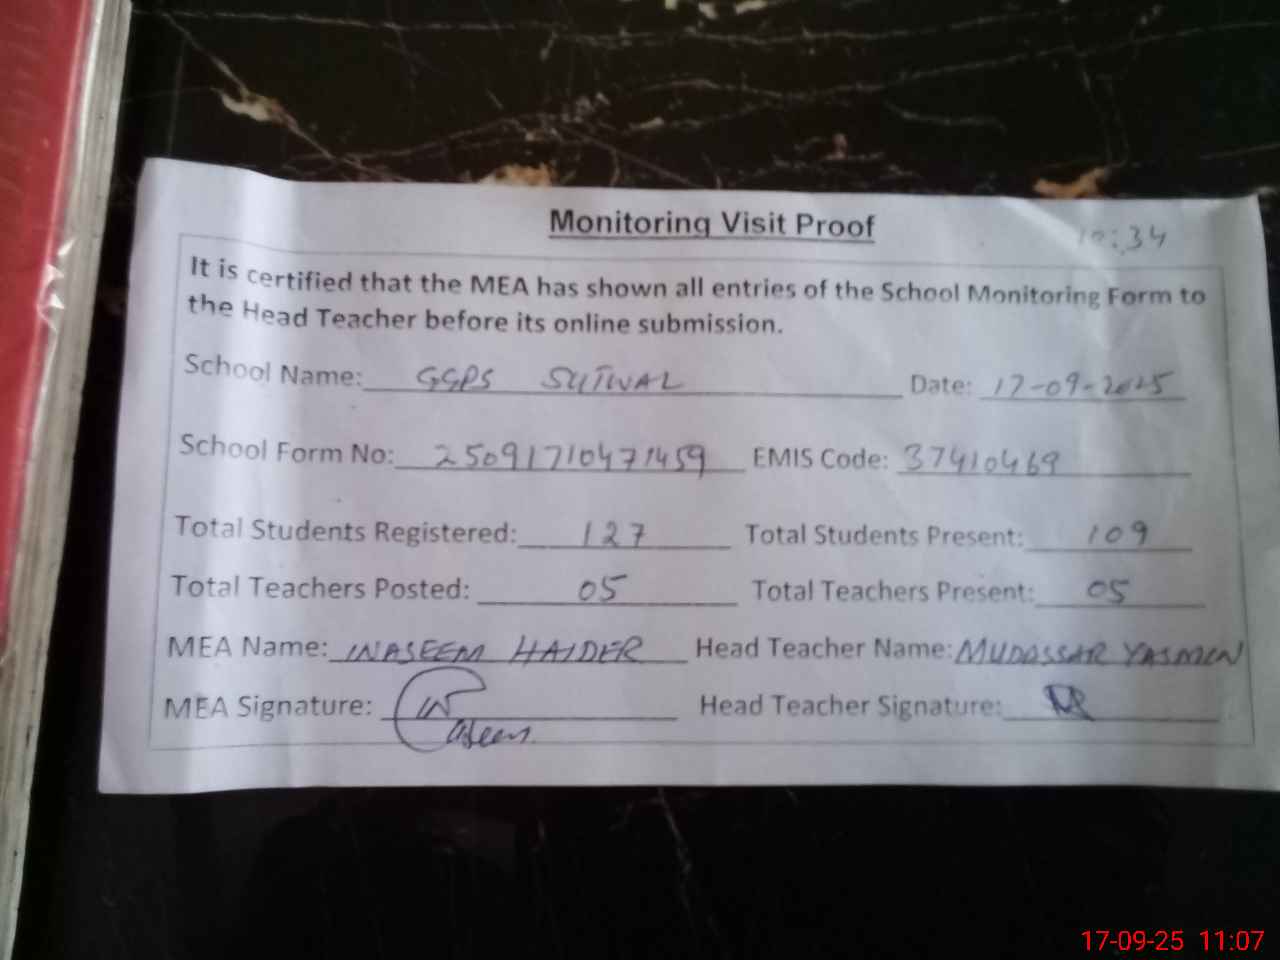 Monitoring Visit Proof
10:34
It is certified that the MEA has shown all entries of the School Monitoring Form to
the Head Teacher before its online submission.
School Name: GGPS SUTWAL Date: 17-09-2025
School Form No: 25091710471459 EMIS Code: 37410469
Total Students Registered: 127 Total Students Present: 109
Total Teachers Posted: 05 Total Teachers Present: 05
MEA Name: WASEEM HAIDER Head Teacher Name: MUDASSAR YASMEEN
MEA Signature: Waseem Head Teacher Signature:
17-09-25 11:07